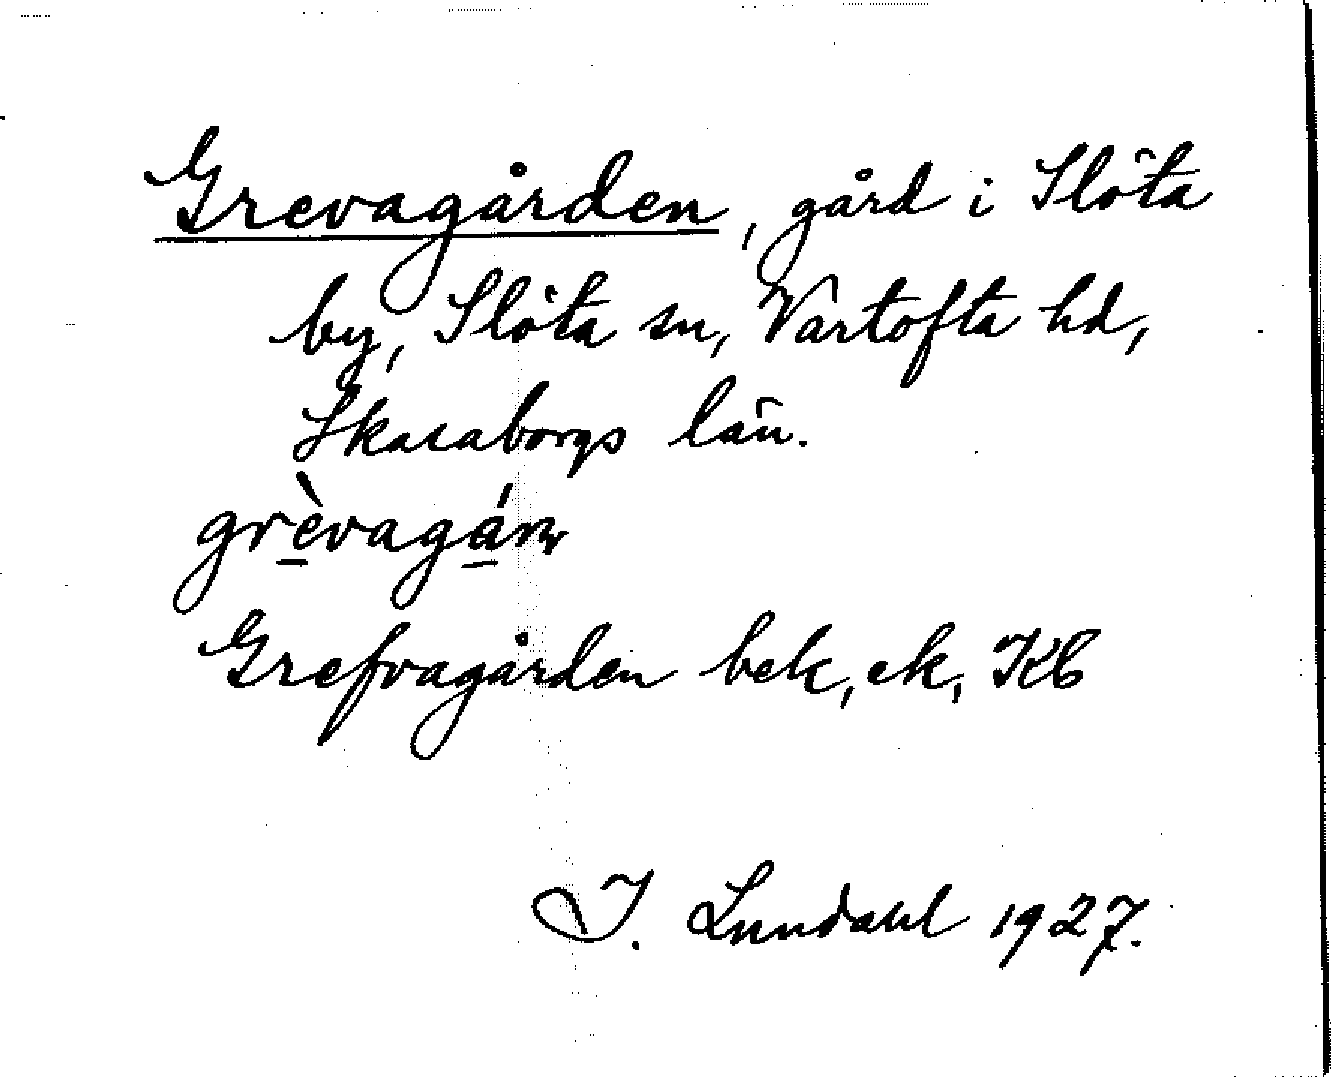 Grevagården, gård i Slöta
by, Slöta sn, Vartofta hd,
Skaraborgs län.
grèvagán
Grefvagården bek, ek, Kb
I. Lundahl 1927.